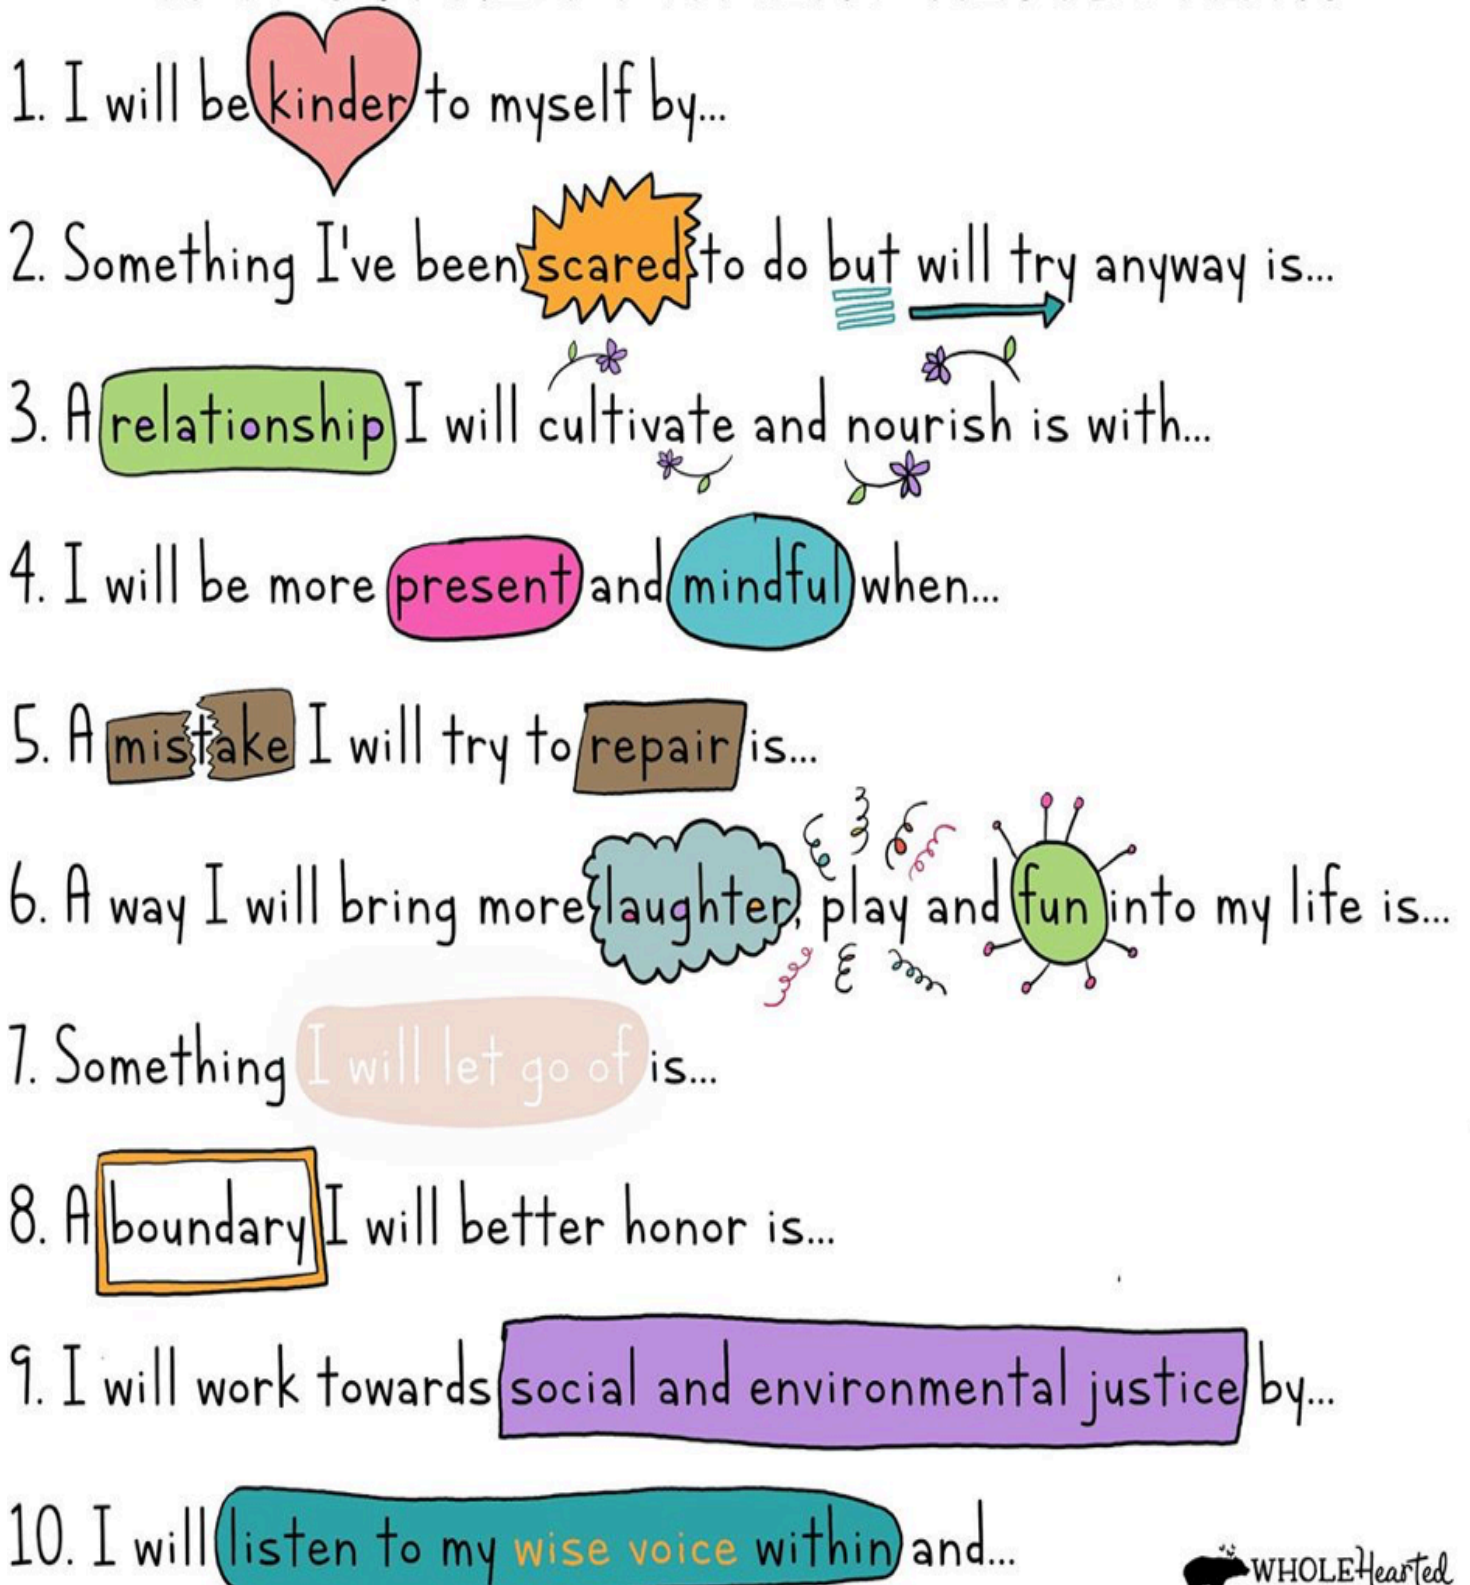 1. I will be kinder to myself by...
2. Something I've been scared to do but will try anyway is...
3. A relationship I will cultivate and nourish is with...
4. I will be more present and mindful when...
5. A mistake I will try to repair is...
6. A way I will bring more laughter, play and fun into my life is...
7. Something I will let go of is...
8. A boundary I will better honor is...
9. I will work towards social and environmental justice by...
10. I will listen to my wise voice within and...
WHOLEHearted